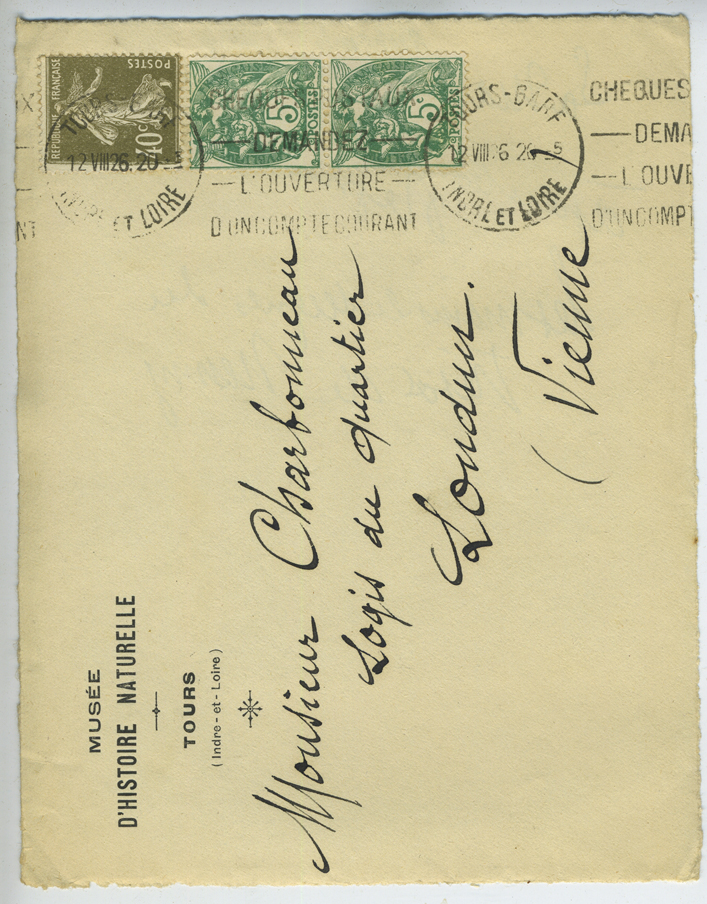 RÉPUBLIQUE FRANÇAISE
POSTES
40c
5c
POSTES
5c
POSTES
TOURS-GARE
12 VIII 26. 20 -5
INDRE ET LOIRE
CHEQUES POSTAUX
—DEMANDEZ—
—L'OUVERTURE—
D'UN COMPTE COURANT
TOURS-GARE
12 VIII 26 20 -5
INDRE ET LOIRE
CHEQUES
—DEMA
—L'OUVE
D'UN COMPT
MUSÉE
D'HISTOIRE NATURELLE
TOURS
(Indre-et-Loire)
Monsieur Charbonneau
Logis du quartier
Loudun.
(Vienne